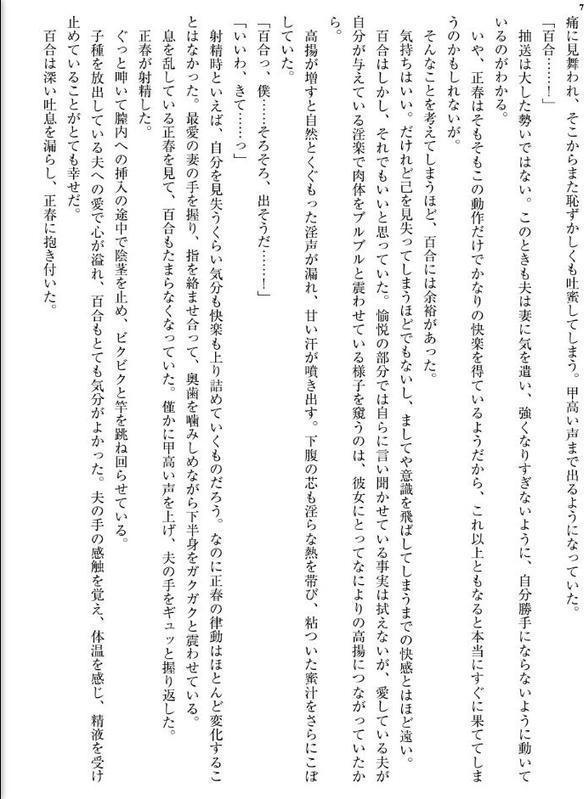 7
痛に見舞われ、そこからまた恥ずかしくも吐蜜してしまう。甲高い声まで出るようになっていた。
「百合……！」
抽送は大した勢いではない。このときも夫は妻に気を遣い、強くなりすぎないように、自分勝手にならないように動いて
いるのがわかる。
いや、正春はそもそもこの動作だけでかなりの快楽を得ているようだから、これ以上ともなると本当にすぐに果ててしま
うのかもしれないが。
そんなことを考えてしまうほど、百合には余裕があった。
気持ちはいい。だけれど己を見失ってしまうほどでもないし、ましてや意識を飛ばしてしまうまでの快感とはほど遠い。
百合はしかし、それでもいいと思っていた。愉悦の部分では自らに言い聞かせている事実は拭えないが、愛している夫が
自分が与えている淫楽で肉体をブルブルと震わせている様子を窺うのは、彼女にとってなによりの高揚につながっていたか
ら。
高揚が増すと自然とくぐもった淫声が漏れ、甘い汗が噴き出す。下腹の芯も淫らな熱を帯び、粘ついた蜜汁をさらにこぼ
していた。
「百合っ、僕……そろそろ、出そうだ……！」
「いいわ、きて……っ」
射精時といえば、自分を見失うくらい気分も快楽も上り詰めていくものだろう。なのに正春の律動はほとんど変化するこ
とはなかった。最愛の妻の手を握り、指を絡ませ合って、奥歯を噛みしめながら下半身をガクガクと震わせている。
息を乱している正春を見て、百合もたまらなくなっていた。僅かに甲高い声を上げ、夫の手をギュッと握り返した。
正春が射精した。
ぐっと呻いて膣内への挿入の途中で陰茎を止め、ビクビクと竿を跳ね回らせている。
子種を放出している夫への愛で心が溢れ、百合もとても気分がよかった。夫の手の感触を覚え、体温を感じ、精液を受け
止めていることがとても幸せだ。
百合は深い吐息を漏らし、正春に抱き付いた。